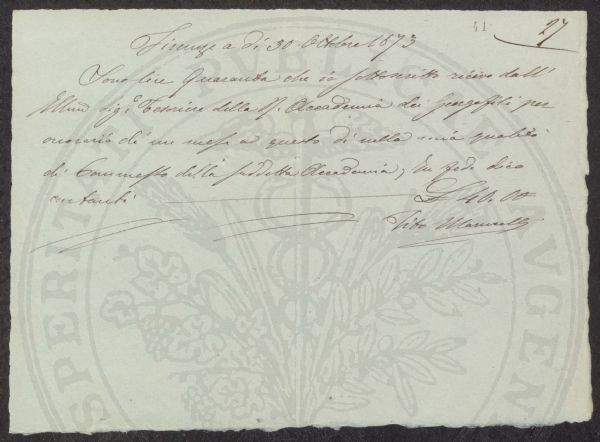 41
27
Firenze a dì 30 Ottobre 1873
Sono lire Quaranta che io sottoscritto ricevo dall'
Illmo Sigr Tesoriere della R. Accademia dei Georgofili per
onorario di un mese a questo dì nella mia qualità
di Commesso della suddetta Accademia; In fede dico
contanti £ 40.00
Vito
PROSPERITATI PUBLICAE AUGENDAE